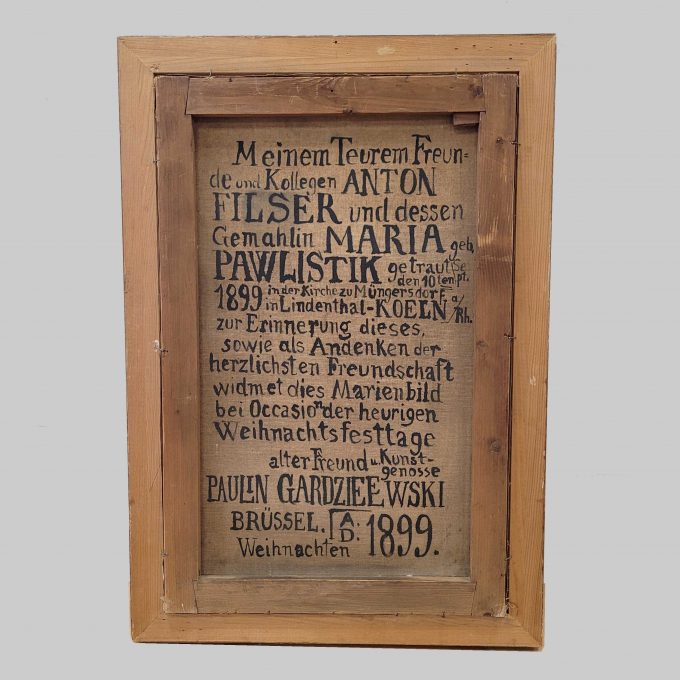 Meinem Teurem Freun-
de und Kollegen ANTON
FILSER und dessen
Gemahlin MARIA geb.
PAWLISTIK getraut
den 10ten Sept.
1899 in der Kirche zu Müngersdorf
in Lindenthal-KOELN a/Rh.
zur Erinnerung dieses,
sowie als Andenken der
herzlichsten Freundschaft
widmet dies Marienbild
bei Occasion der heurigen
Weihnachtsfesttage
alter Freund u. Kunst-
genosse
PAULIN GARDZIEEWSKI
BRÜSSEL. A.D: 1899.
Weihnachten